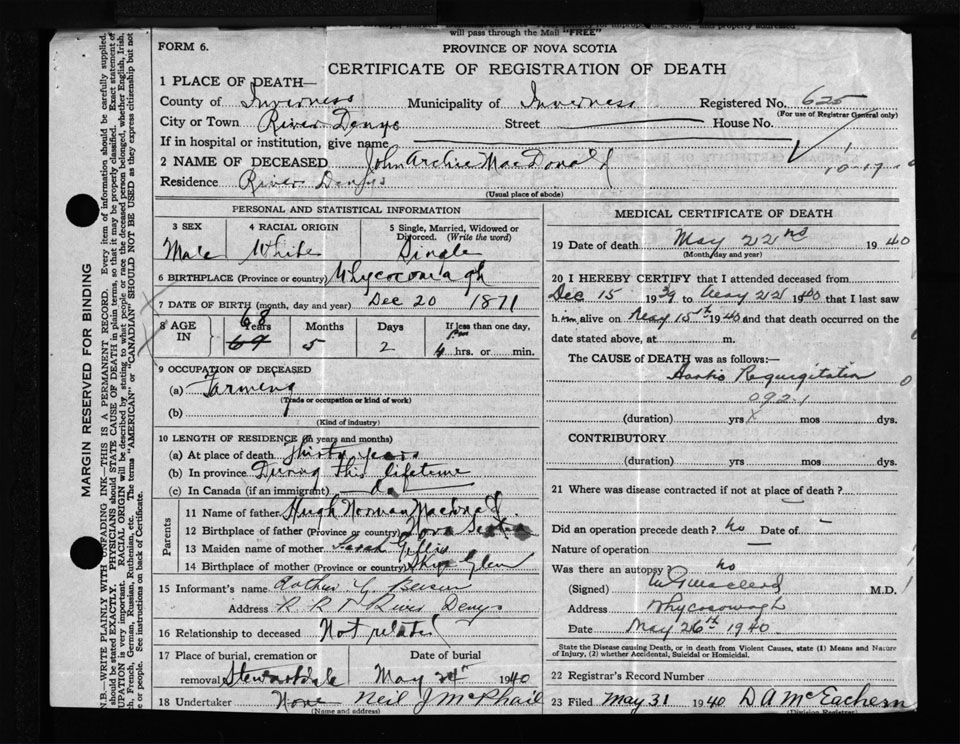 will pass through the Mail "FREE"
FORM 6.
PROVINCE OF NOVA SCOTIA
CERTIFICATE OF REGISTRATION OF DEATH
1 PLACE OF DEATH—
County of Inverness Municipality of Inverness Registered No. 625
(For use of Registrar General only)
City or Town River Denys Street House No.
If in hospital or institution, give name
2 NAME OF DECEASED John Archie MacDonald
10-17
Residence River Denys
(Usual place of abode)
PERSONAL AND STATISTICAL INFORMATION
3 SEX 4 RACIAL ORIGIN 5 Single, Married, Widowed or Divorced. (Write the word)
Male White Single
6 BIRTHPLACE (Province or county) Whycocomagh
7 DATE OF BIRTH (month, day and year) Dec 20 1871
8 AGE IN Years Months Days If less than one day, hrs. or min.
68 69 5 2 4 pm
9 OCCUPATION OF DECEASED
(a) Farming
(Trade or occupation or kind of work)
(b)
(Kind of industry)
10 LENGTH OF RESIDENCE (in years and months)
(a) At place of death Thirty years
(b) In province During this lifetime
(c) In Canada (if an immigrant) do
Parents
11 Name of father Hugh Norman Macdonald
12 Birthplace of father (Province or county) Nova Scotia
13 Maiden name of mother Sarah Gillis
14 Birthplace of mother (Province or county) Skye Glen
15 Informant's name
Address R R 1 River Denys
16 Relationship to deceased Not related
17 Place of burial, cremation or removal Stewartdale Date of burial May 24th 1940
18 Undertaker None Neil J McPhail
(Name and address)
MEDICAL CERTIFICATE OF DEATH
19 Date of death May 22nd 1940
(Month/day and year)
20 I HEREBY CERTIFY that I attended deceased from
Dec 15 1939 to May 22 1940 that I last saw
him alive on May 15th 1940 and that death occurred on the
date stated above, at m.
The CAUSE of DEATH was as follows:—
Aortic Regurgitation
092.1
(duration) yrs mos dys.
CONTRIBUTORY
(duration) yrs mos dys.
21 Where was disease contracted if not at place of death?
Did an operation precede death? no Date of –
Nature of operation —
Was there an autopsy? no
(Signed) M.D.
Address Whycocomagh
Date May 26th 1940
State the Disease causing Death, or in death from Violent Causes, state (1) Means and Nature of Injury, (2) whether Accidental, Suicidal or Homicidal.
22 Registrar's Record Number
23 Filed May 31 1940 D A McEachern
(Division Registrar)
MARGIN RESERVED FOR BINDING
N.B.—WRITE PLAINLY WITH UNFADING INK—THIS IS A PERMANENT RECORD. Every item of information should be carefully supplied.
should be stated EXACTLY. PHYSICIANS should STATE CAUSE OF DEATH in plain terms, so that it may be properly classified. Exact statement of
UPATION is very important. RACIAL ORIGIN will be described by stating to what people or race the deceased person belonged, whether English, Irish,
ch, French, German, Russian, Ruthenian, etc. The terms "AMERICAN" or "CANADIAN" SHOULD NOT BE USED as they express citizenship but not
e or people. See instructions on back of Certificate.